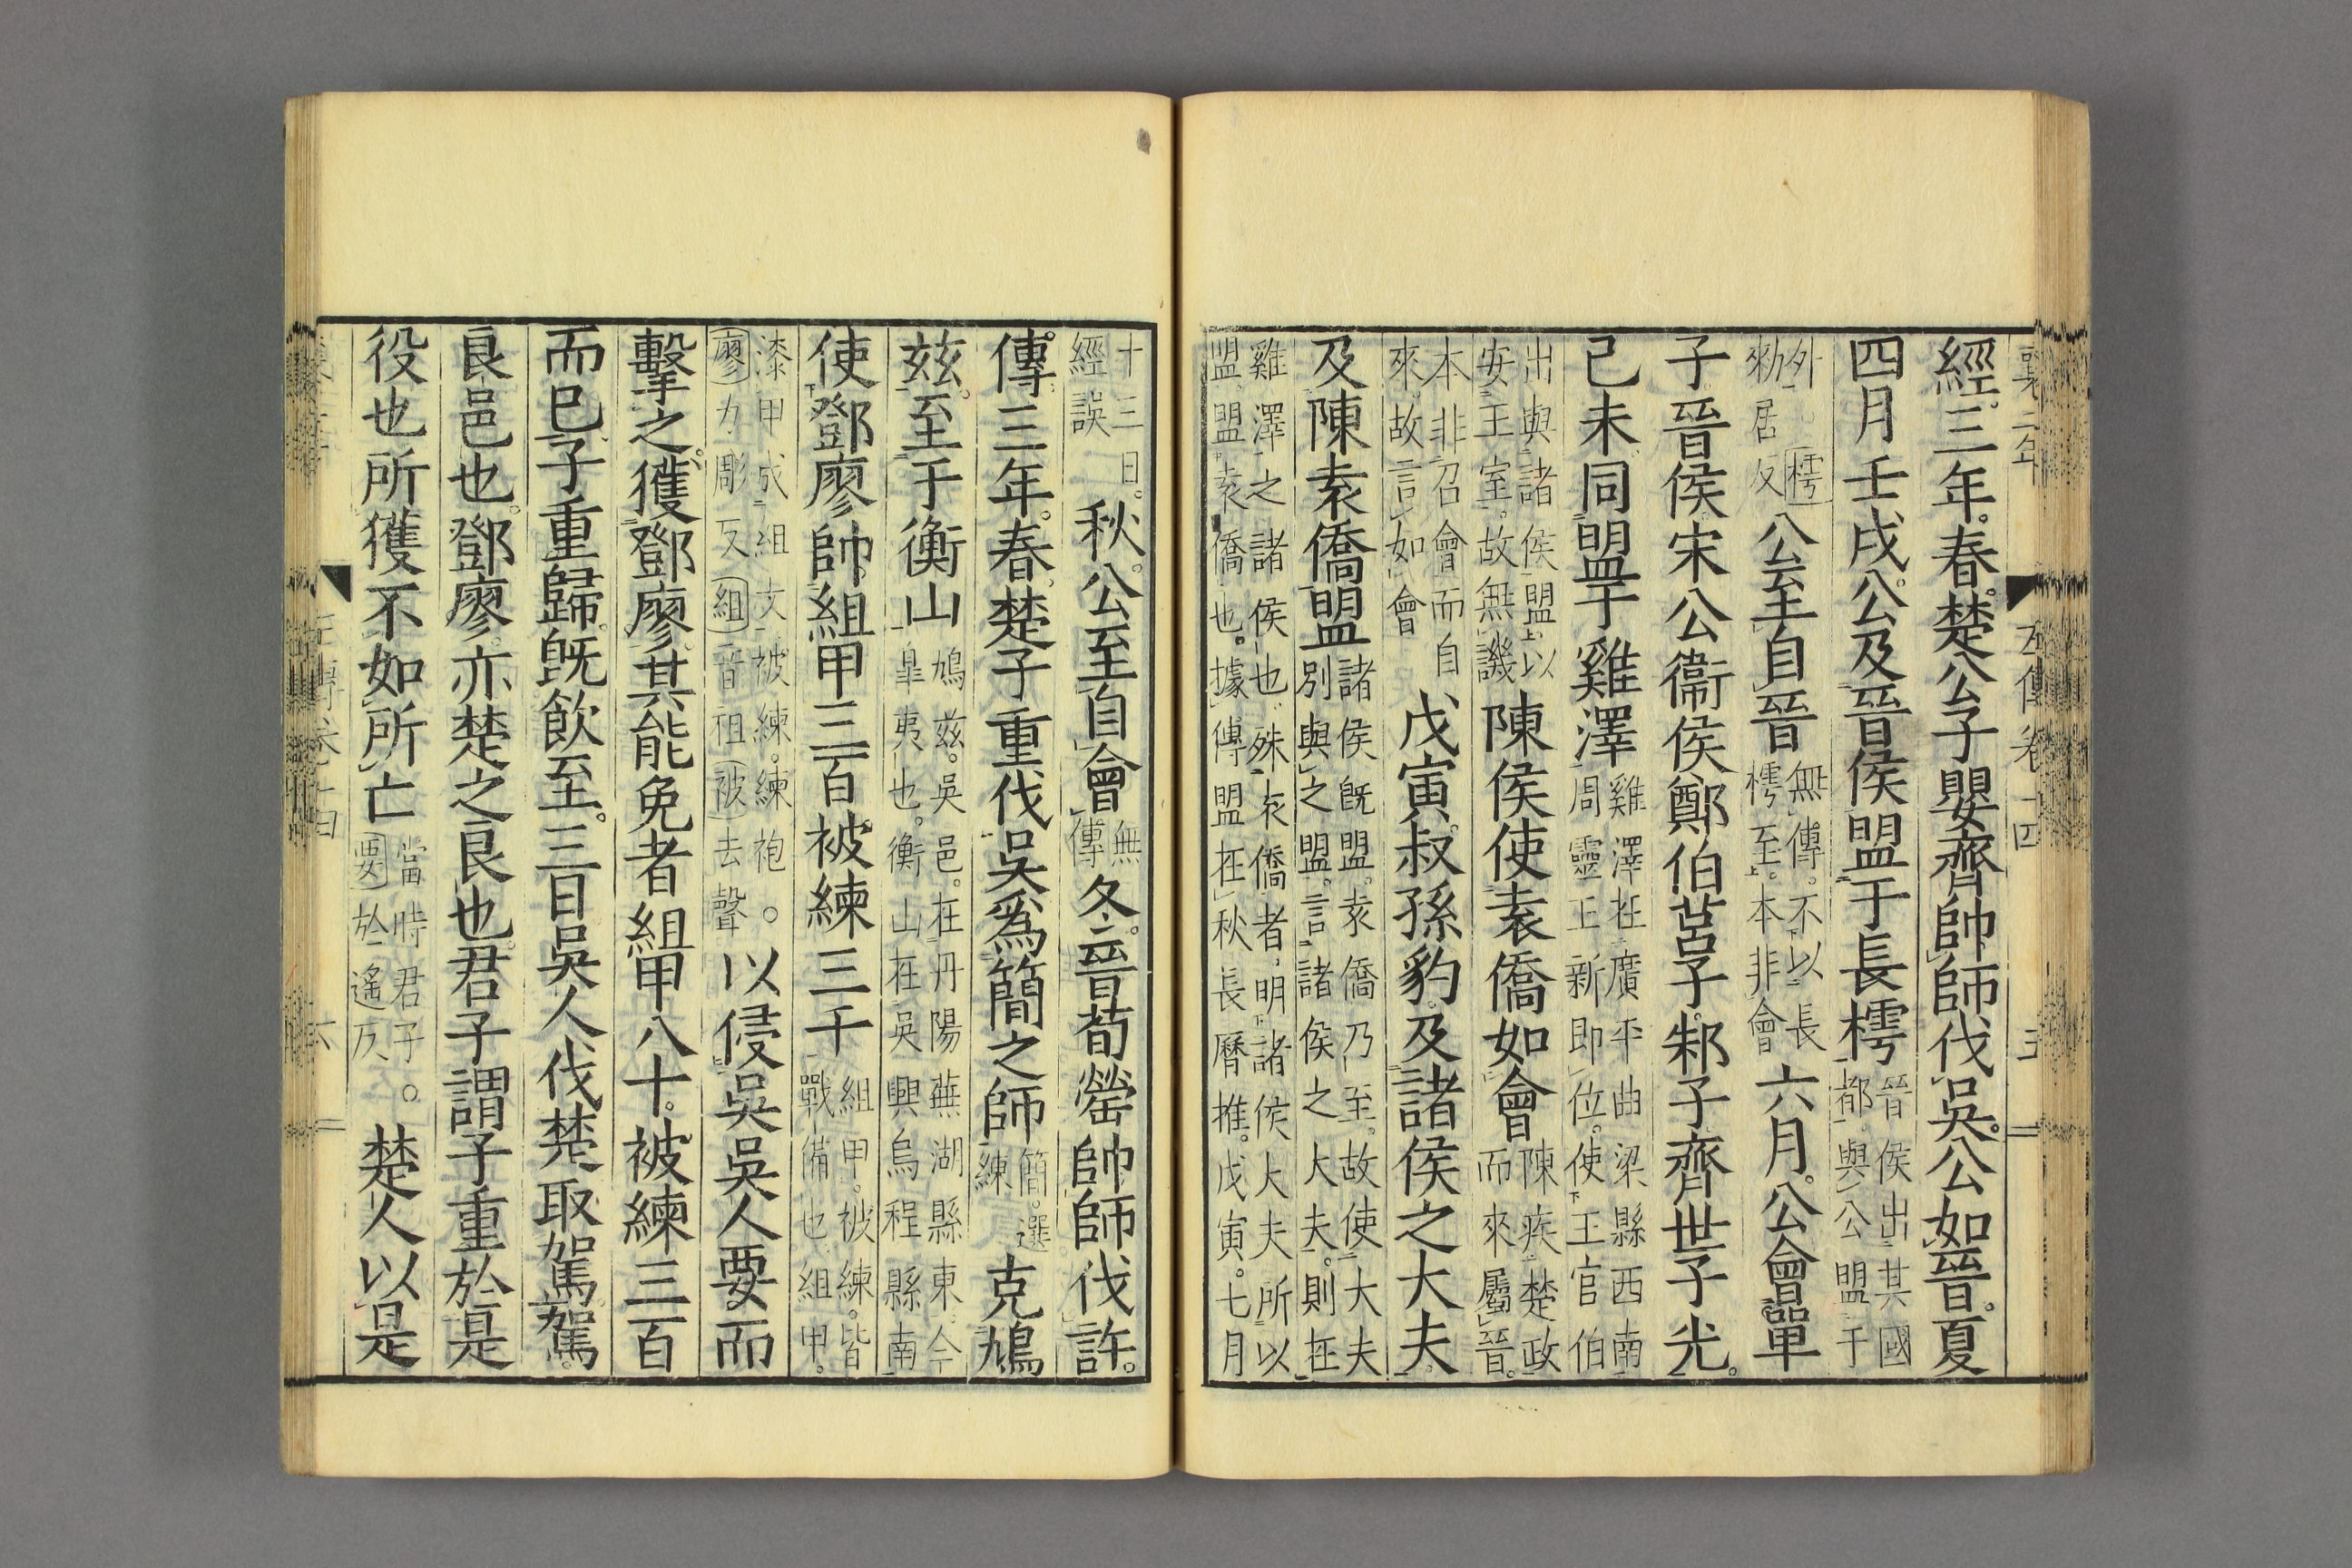 襄三年 左傳卷十四
經。三年。春。楚公子嬰齊帥師伐吳。公如晉。夏
四月壬戌。公及晉侯盟于長樗晉侯出其國都。與公盟于
外。樗勑居反公至自晉無傳。不以長樗至。本非會六月。公會單
子晉侯宋公衞侯鄭伯莒子邾子齊世子光。
己未同盟于雞澤雞澤在廣平曲梁縣西南周靈王新即位。使王官伯
出與諸侯盟以安王室。故無譏陳侯使袁僑如會陳疾楚政而來屬晉。
本非召會而自來。故言如會戊寅。叔孫豹及諸侯之大夫
及陳袁僑盟諸侯既盟。袁僑乃至。故使大夫別與之盟。言諸侯之大夫。則在
雞澤之諸侯也。殊袁僑者。明諸侯大夫所以盟。盟袁僑也。據傳盟在秋長曆推。戊寅。七月
十三日。經誤秋。公至自會無傳冬。晉荀罃帥師伐許。
傳。三年。春。楚子重伐吳。爲簡之師簡。選練克鳩
茲。至于衡山鳩茲。吳邑。在丹陽蕪湖縣東。今皐夷也。衡山在吳興烏程縣南
使鄧廖帥組甲三百。被練三千組甲。被練。皆戰備也。組甲。
漆甲成組文。被練。練袍。廖力彫反組音祖被去聲以侵吳吳人要而
擊之。獲鄧廖。其能免者組甲八十。被練三百
而已。子重歸。既飲至。三日吳人伐楚。取駕駕
良邑也。鄧廖。亦楚之良也。君子謂子重於是
役也所獲不如所亡當時君子。要於遙反楚人以是